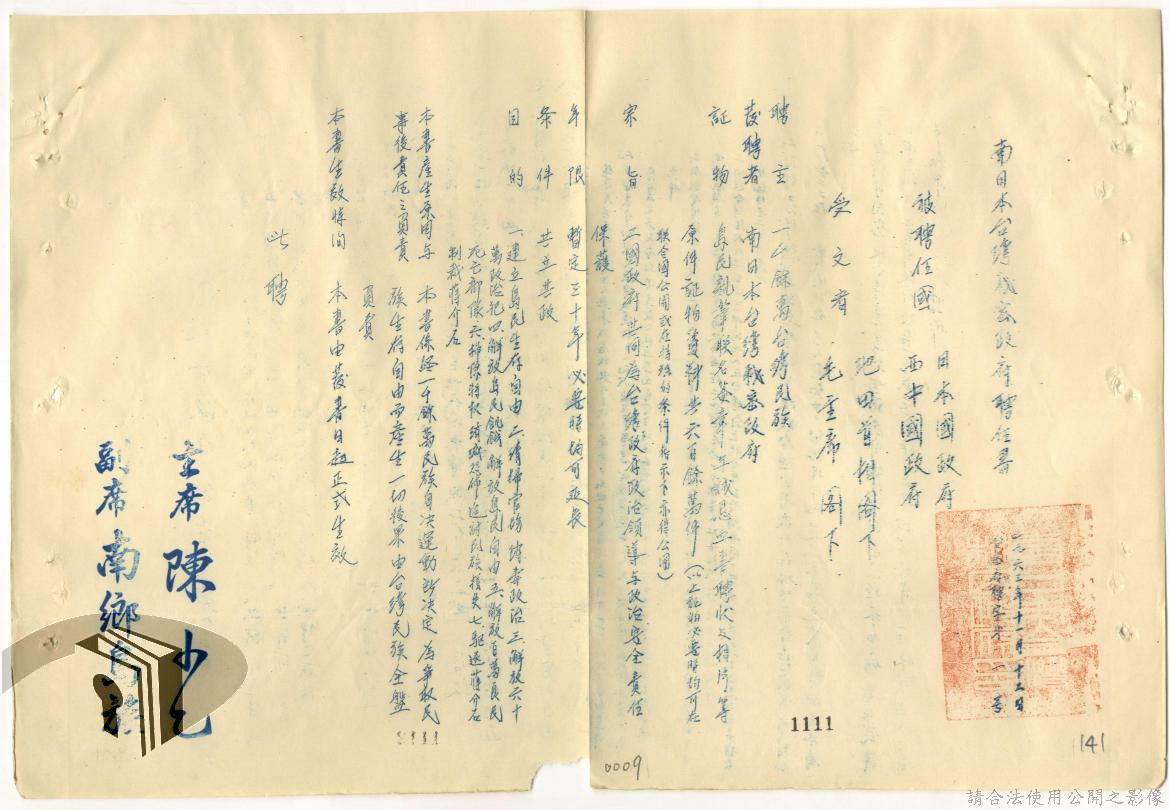 南日本台湾机密政府聘任書
一九六三年十一月十三日
一号
被聘任國 日本國政府
西中國政府
池田首相閣下
受文者 毛主席閣下
聘主 一千餘萬台湾民族
發聘者 南日本台湾机密政府
証物 島民親筆联名签章
原件証物資料共六百餘萬件（以上証物必要時均可在
联合國公開或在特殊的条件指示下亦得公開）
宗旨 二國政府共同為台湾政府政治領導与政治安全責任
保護
年限 暫定三十年必要時均可延長
条件 共立共政
目的 一、建立島民生存自由二、清掃官場毒政治三、解放六十
萬政治犯四、解放島民飢餓解放島民自由五、解放百萬良民
死亡部隊六、
七、驅逐蔣介石
制裁蔣介石
本書產生原因与 本書係經一千餘萬民族自决運動所决定為爭取民
事後責任之負責 族生存自由而產生一切後果由台湾民族全盤
負責
本書生效時間 本書由發書日起正式生效
此聘
主席 陳少乙
副席 南鄉
1111
0009
141
請合法使用公開之影像